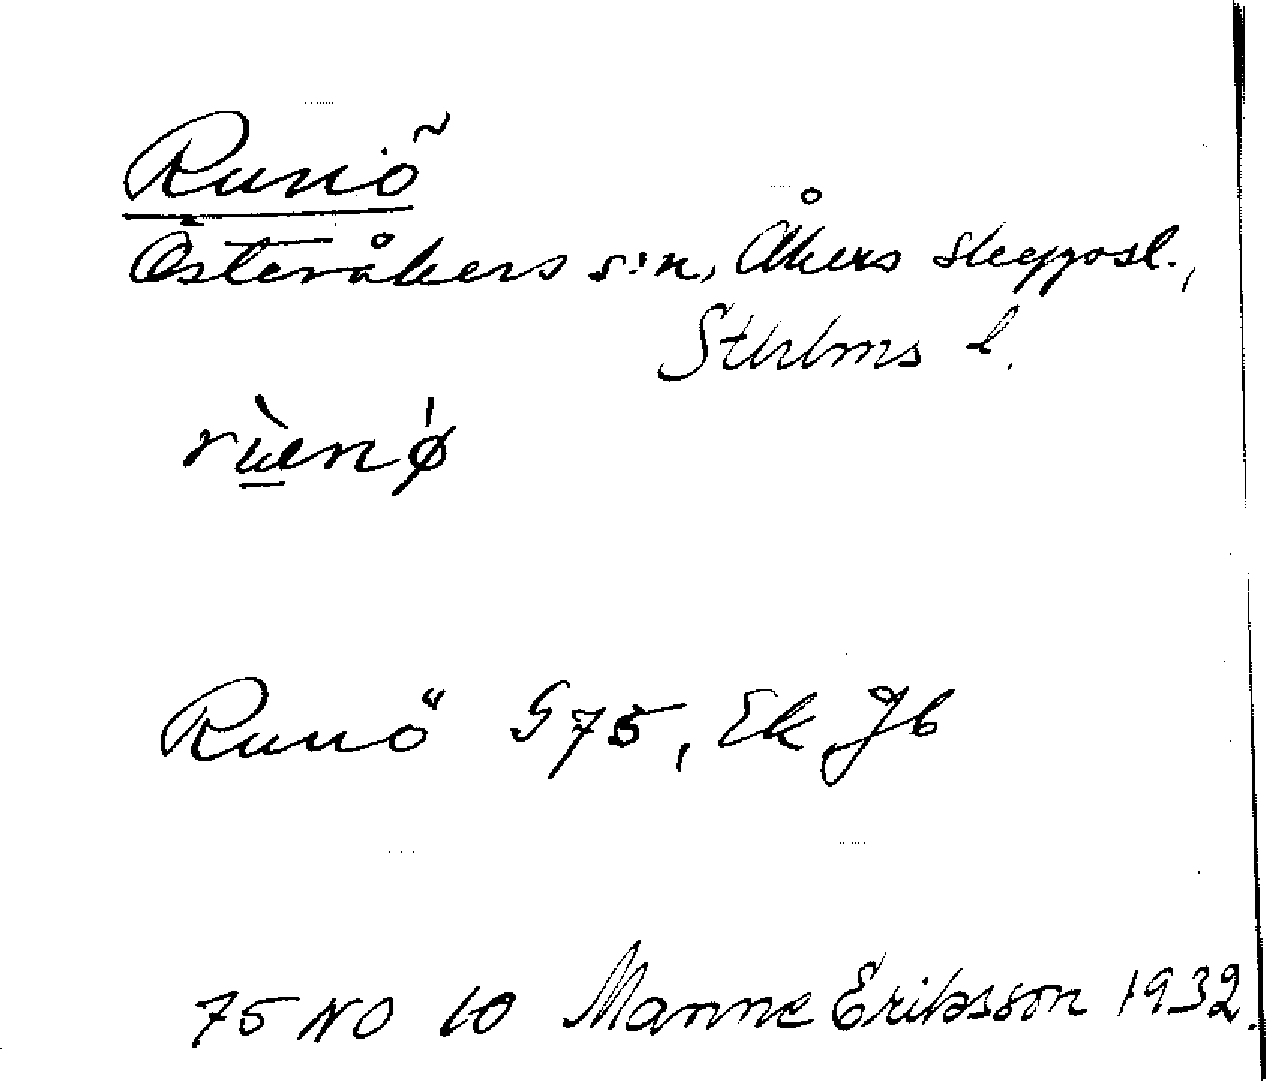 Runö
Österåkers s:n, Åkers skeppsl.,
Sthlms l.
rùenǿ
Runö G75, Ek, Jb
75 NO 10 Manne Eriksson 1932.